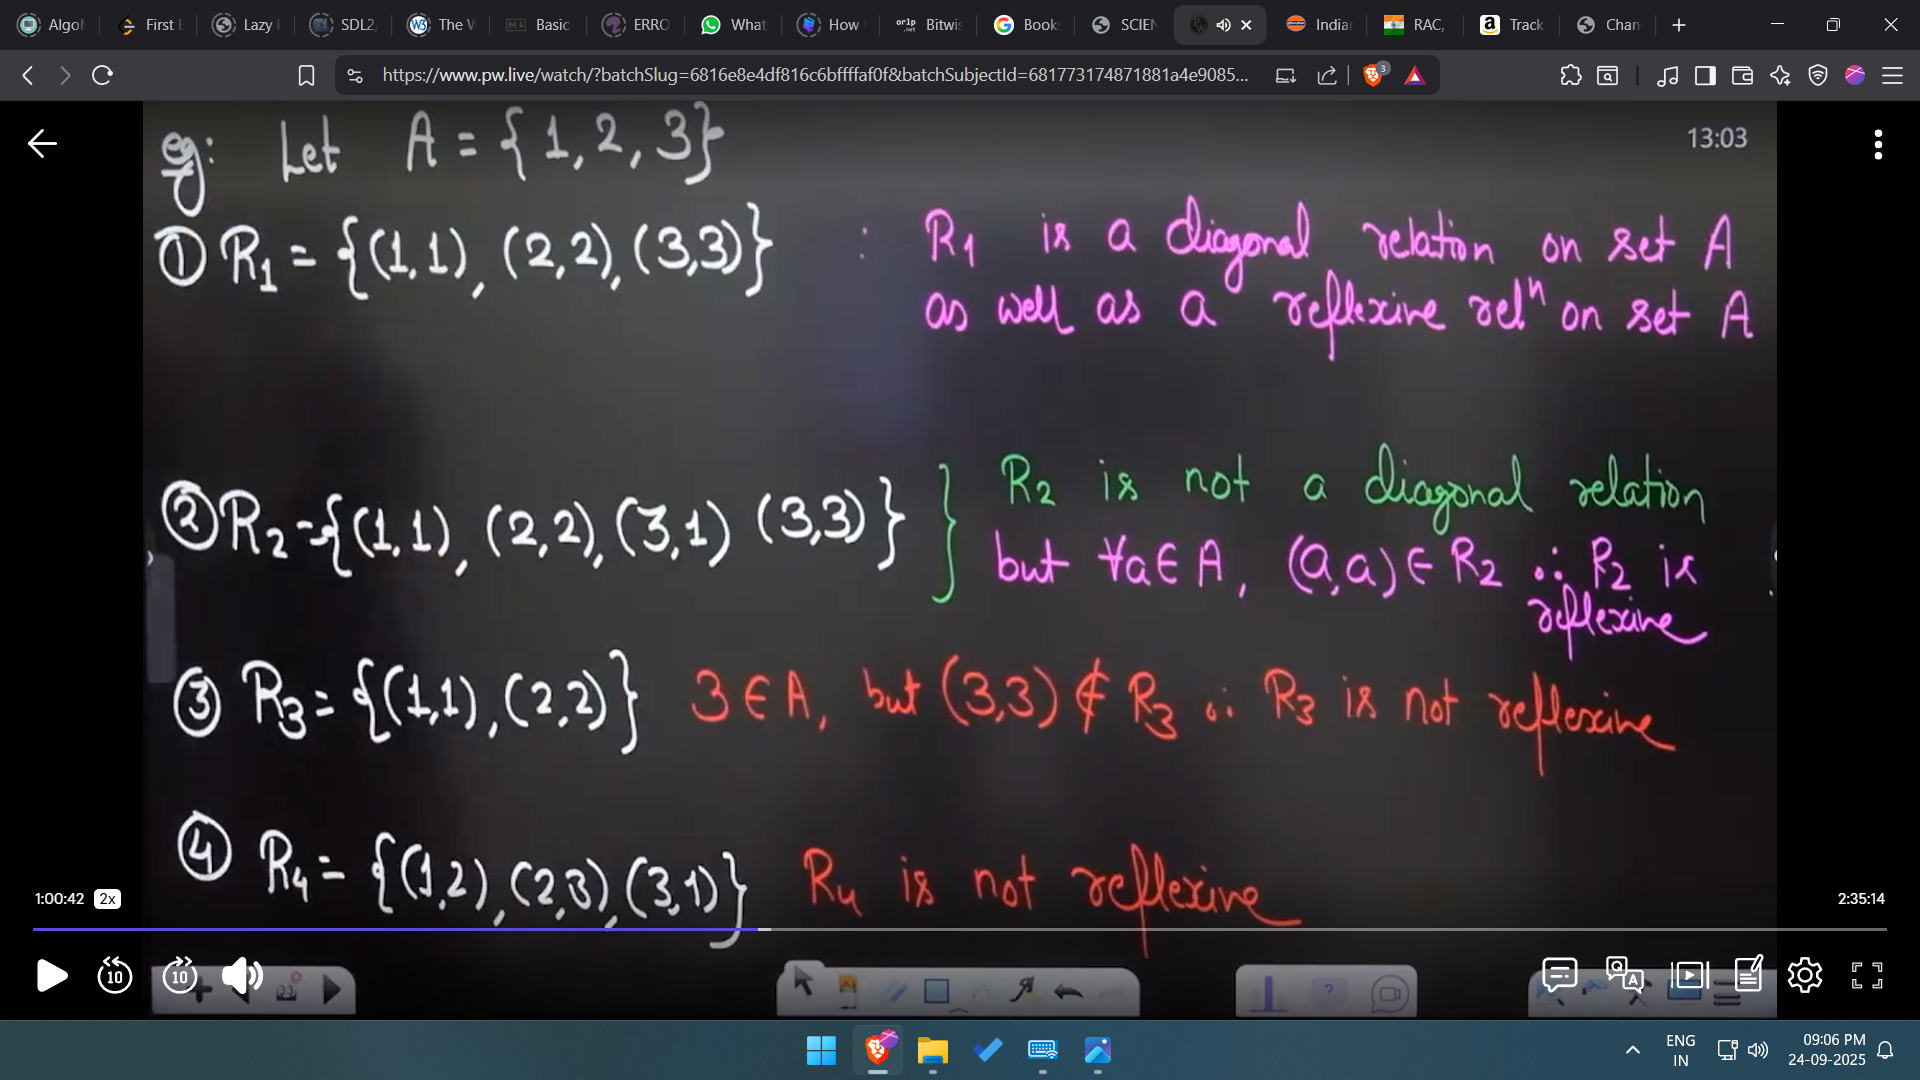 Algo
First
Lazy
SDL2
The
Basic
ERRO
What
How
orlp .net Bitwis
Book
SCIEN
India
RAC,
Track
Chan
https://www.pw.live/watch/?batchSlug=6816e8e4df816c6bffffaf0f&batchSubjectId=681773174871881a4e9085...
3
eg: Let A = {1, 2, 3}
13:03
① R₁ = {(1,1), (2,2), (3,3)} : R₁ is a diagonal relation on set A
as well as a reflexive relⁿ on set A
② R₂ = {(1,1), (2,2), (3,1) (3,3)} } R₂ is not a diagonal relation
but ∀a∈A, (a,a) ∈ R₂ ∴ R₂ is
reflexive
③ R₃ = {(1,1), (2,2)} 3 ∈ A, but (3,3) ∉ R₃ ∴ R₃ is not reflexive
④ R₄ = {(1,2), (2,3), (3,1)} R₄ is not reflexive
1:00:42 2x
2:35:14
10
10
33
ENG
IN
09:06 PM
24-09-2025